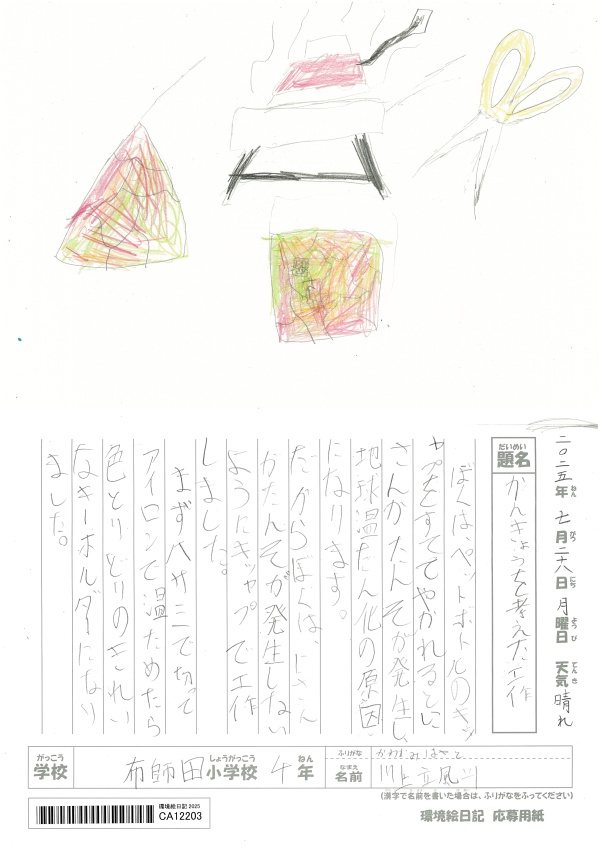 二〇二五年 七月二十八日 月曜日 天気 晴れ
題名 かんきょうを考えた工作
ぼくは、ペットボトルのキャ
ップをすててやかれるとに
さんかたんそが発生し、
地球温だん化の原因
になります。
だからぼくは、にさん
かたんそが発生しない
ようにキャップで工作
しました。
まずハサミで切って
アイロンで温ためたら
色とりどりのきれい
なキーホルダーになり
ました。
がっこう 学校 布師田 しょうがっこう 小学校 4 ねん 年
ふりがな かわかみ はやと
なまえ 名前 川上
(漢字で名前を書いた場合は、ふりがなをふってください)
環境絵日記 2025
CA12203
環境絵日記 応募用紙